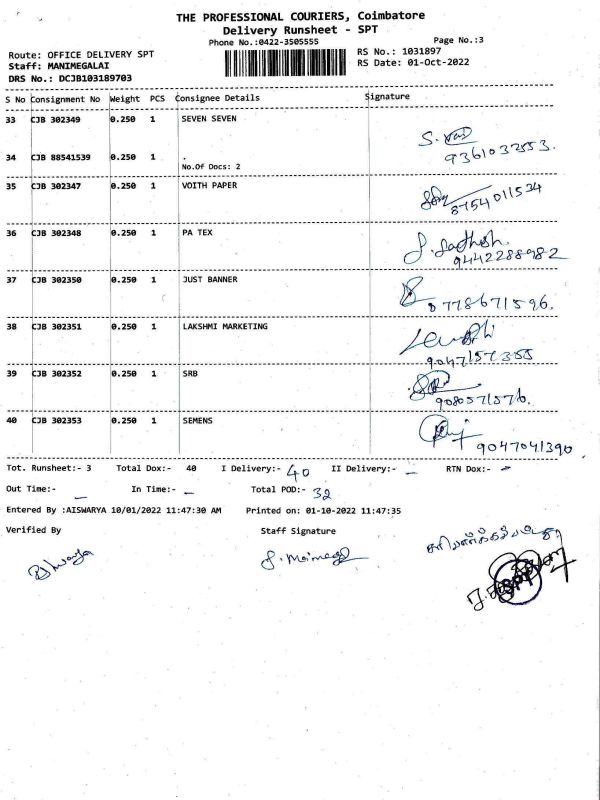 THE PROFESSIONAL COURIERS, Coimbatore
Delivery Runsheet - SPT
Phone No.:0422-3505555
Page No.:3
Route: OFFICE DELIVERY SPT
RS No.: 1031897
Staff: MANIMEGALAI
RS Date: 01-Oct-2022
DRS No.: DCJB103189703
S No Consignment No Weight PCS Consignee Details Signature
33 CJB 302349 0.250 1 SEVEN SEVEN
9361032553.
34 CJB 88541539 0.250 1 .
No.Of Docs: 2
35 CJB 302347 0.250 1 VOITH PAPER
8754011534
36 CJB 302348 0.250 1 PA TEX
S. Sathish.
9442288982
37 CJB 302350 0.250 1 JUST BANNER
8778671596.
38 CJB 302351 0.250 1 LAKSHMI MARKETING
9047157355
39 CJB 302352 0.250 1 SRB
9080571576.
40 CJB 302353 0.250 1 SEMENS
9047041390
Tot. Runsheet:- 3 Total Dox:- 40 I Delivery:- 40 II Delivery:- - RTN Dox:- -
Out Time:- - In Time:- - Total POD:- 32
Entered By :AISWARYA 10/01/2022 11:47:30 AM Printed on: 01-10-2022 11:47:35
Verified By Staff Signature